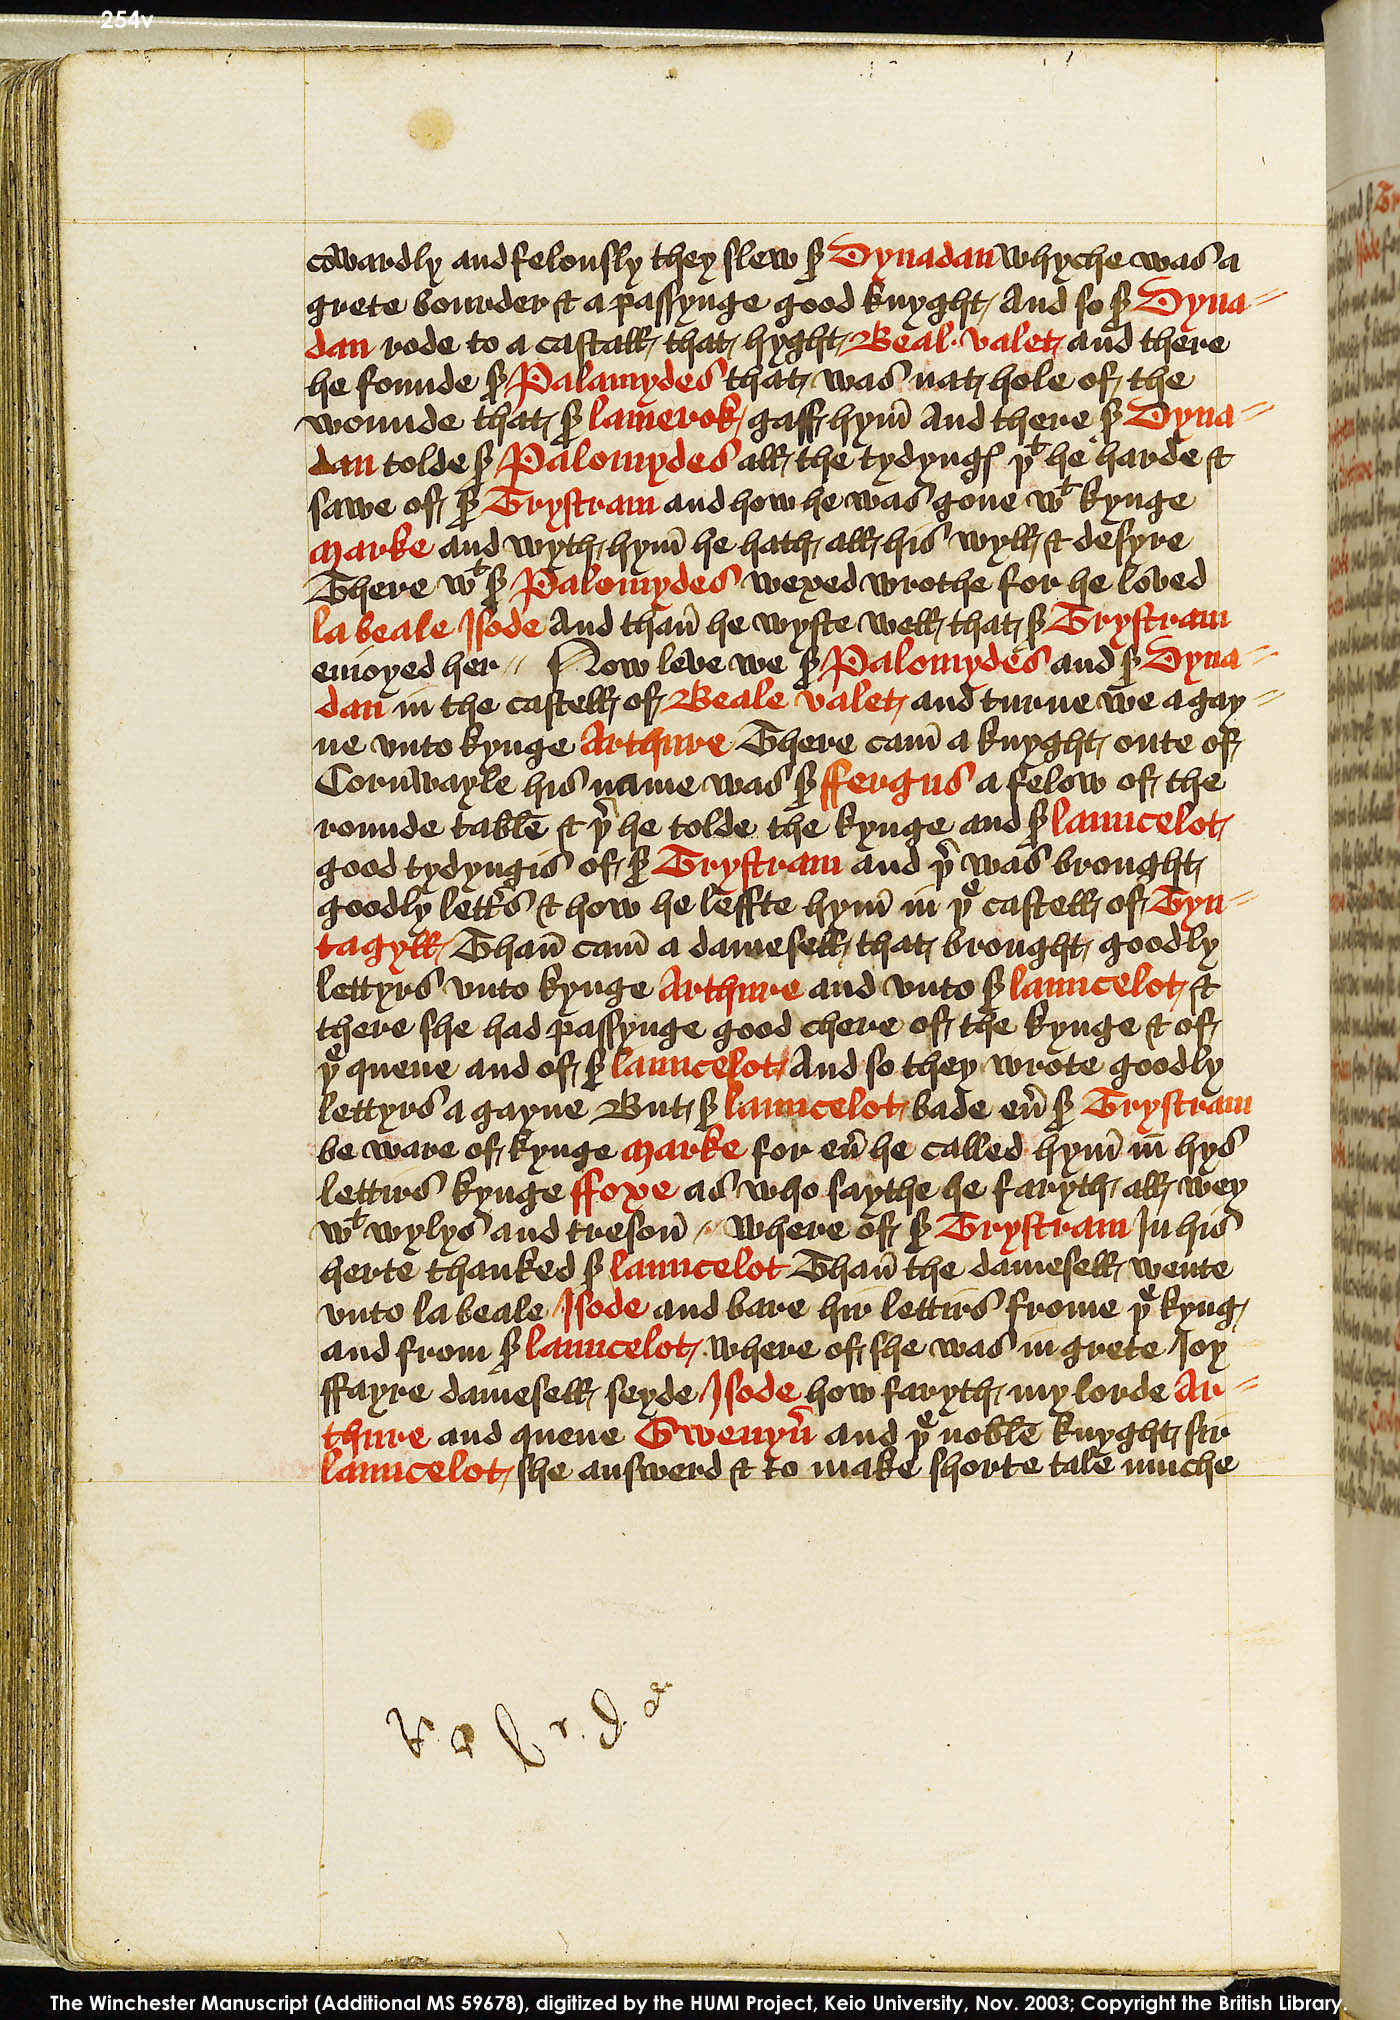 254v
cowardly and felonsly they slew sʳ Dynadan whyche was a
grete bourder & a passynge good knyght And so sʳ Dyna=
dan rode to a castall that hyght Beal valet and there
he founde sʳ Palamydes that was nat hole of the
wounde that sʳ lamerok gaff hym̄ And there sʳ Dyna=
dan tolde sʳ Palomydes all the tydyngꝭ þᵗ he harde &
sawe of sʳ Trystram and how he was gone wᵗ kynge
Marke and wyth hym̄ he hath all his wyll & desyre
There wᵗ sʳ Palomydes wexed wrothe for he loved
la beale Isode And than̄ he wyste well that sʳ Trystram
enioyed her // Now leve we sʳ Palomydes and sʳ Dyna=
dan in the castell of Beale valet and turne we a gay=
ne vnto kynge Arthure There cam̄ a knyght oute of
Cornwayle his name was sʳ ffergus a felow of the
rounde table & þʳ he tolde the kynge and sʳ launcelot
good tydyngis of sʳ Trystram and þʳ was brought
goodly lettʳs & how he leffte hym̄ in þᵉ castell of Tyn=
tagyll Than̄ cam̄ a damesell that brought goodly
lettyrs vnto kynge Arthure and vnto sʳ launcelot &
there she had passynge good chere of the kynge & of
þᵉ quene and of sʳ launcelot And so they wrote goodly
lettyrs a gayne But sʳ launcelot bade eū sʳ Trystram
be ware of kynge Marke for eū he called hym̄ in̄ hys
lettirs kynge ffoxe as who saythe he faryth all wey
wᵗ wylys and treson̄ // Where of sʳ Trystram In his
herte thanked sʳ launcelot Than̄ the damesell wente
vnto la beale Isode and bare hir lettirs frome þᵉ kyng
and from sʳ launcelot where of she was in grete Ioy
ffayre damesell seyde Isode how faryth my lorde Ar=
thure and quene Gwenyū and þᵉ noble knyght sir
launcelot she answerd & to make shorte tale muche
The Winchester Manuscript (Additional MS 59678), digitized by the HUMI Project, Keio University, Nov. 2003; Copyright the British Library.